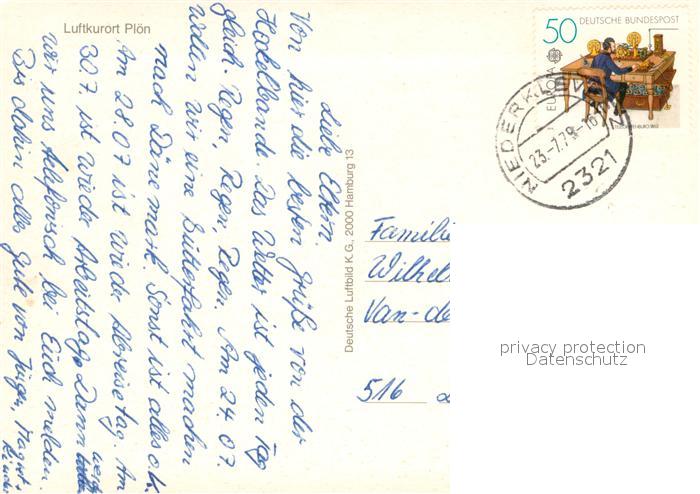 Luftkurort Plön
Liebe Eltern.
Von hier die besten Grüße von der
Haselbande. Das Wetter ist jeden Tag
gleich. Regen, Regen, Regen. Am 24.07.
wollen wir eine Butterfahrt machen
nach Dänemark. Sonst ist alles o.k.
Am 28.07 ist wieder Abreisetag. Am
30.7. ist wieder Arbeitstag. Dann werden
wir uns telefonisch bei Euch melden.
Bis dahin alles Gute von Jürgen, Margret +
Kinder
Deutsche Luftbild K.G., 2000 Hamburg 13
50 DEUTSCHE BUNDESPOST
EUROPA
NIEDERKLEVEZ
23.-7.79-16
2321
Familie
Wilhel
Van-de
516
privacy protection
Datenschutz